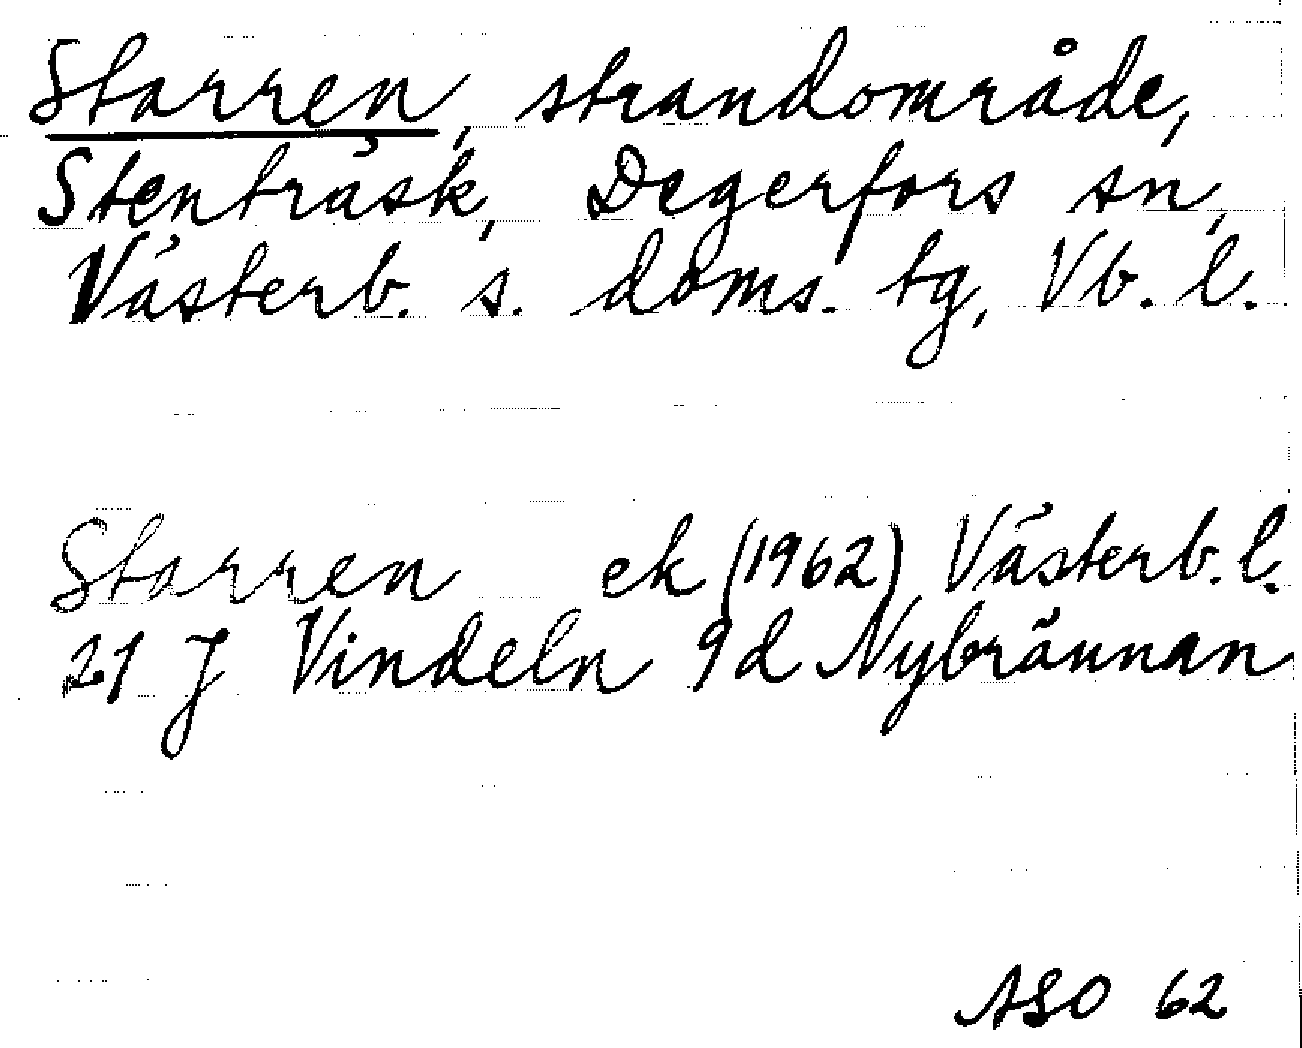 Starren, strandområde,
Stenträsk, Degerfors sn,
Västerb. s. doms. tg, Vb. l.
Starren ek (1962) Västerb. l.
21 J Vindeln 9d Nybrännan
ASO 62